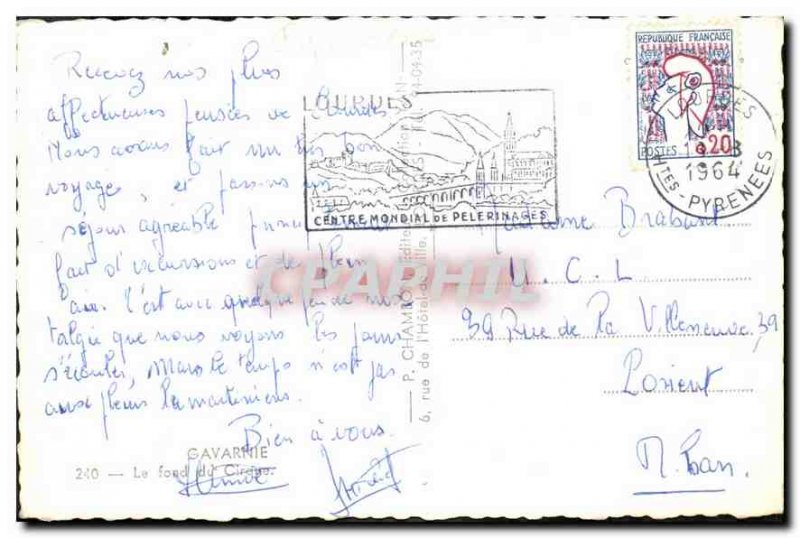 Recevez nos plus
affectueuses pensées de Lourdes
Nous avons fait un très bon
voyage, et passons un
séjour agréable
fait d'excursions et de plein
l'air. C'est avec quelque peu de nos
talgie que nous voyons les jours
s'écouler, Mais le temps n'est pas
aux pleurs lamartiniens.
Bien à vous.
GAVARNIE
240 — Le fond du Cirque.
P. CHAMBON
6, rue de l'Hôtel-de-Ville
LOURDES
CENTRE MONDIAL DE PELERINAGES
REPUBLIQUE FRANÇAISE
POSTES 0,20
LOURDES
1964
HTES-PYRENEES
Madame Brabant
U.C.L
39 Rue de la Villeneuve, 39
Lorient
M.ban.
CPAPHIL